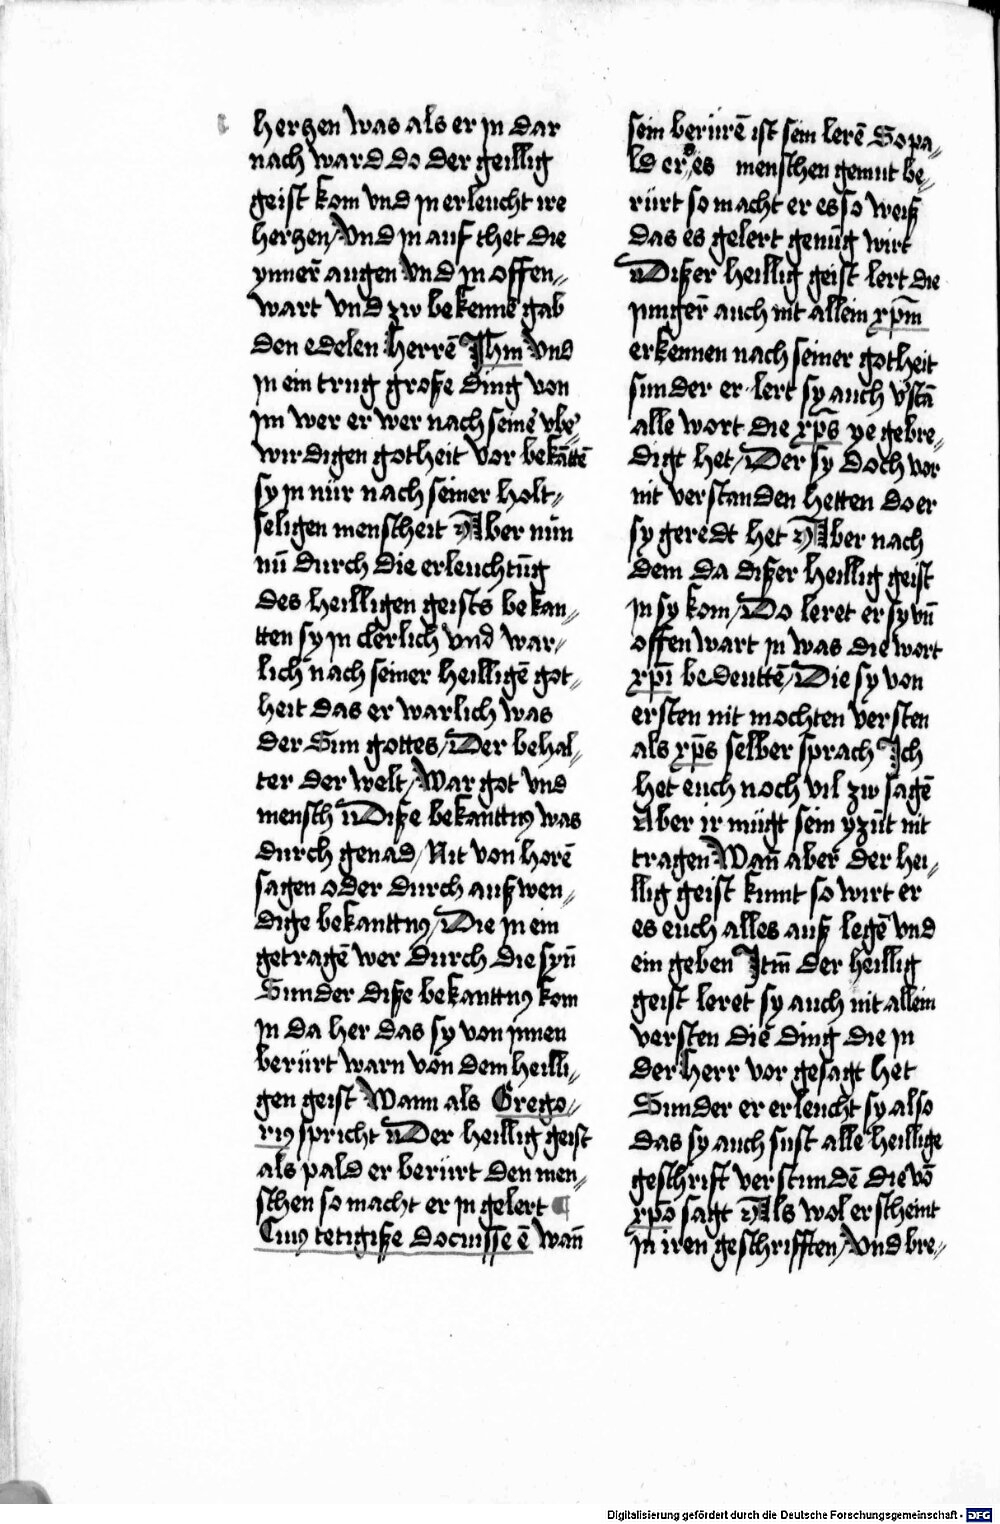 hertzen was als er in dar
nach ward do der geillig
geist kom vnd in erleucht ire
hertzen / Vnd in auf thet die
ynner̄ augen Vnd in offen⸗
wart vnd zw bekenne͂ gab
den edelen herre͂ Jhm Vnd
in ein trug große ding von
im wer er wer nach seine͂ vbe⸗
wirdigen gotheit Vor beka͂tte͂
sy in nür nach seiner holt⸗
seligen menscheit Aber nün
nu͂ durch die erleuchtu͂g
des heilligen geists bekan⸗
tten sy in clerlich vnd war⸗
lich nach seiner heillige͂ got⸗
heit das er warlich was
der Sun gottes / Der behal⸗
ter der welt / War got vnd
mensch Diße bekanttnꝰ was
durch genad / Nit von hore͂
sagen oder durch außwen⸗
dige bekanttnꝰ / Die in ein
getrage͂ wer durch die syn͂
Sunder diße bekanttnꝰ kom
in da her das sy von innen
berürt warn von dem heilli⸗
gen geist Wann als Grego⸗
riꝰ spricht Der heillig geist
als pald er berürt den men⸗
schen so macht er in gelert ¶
Cuiꝰ tetigiße docuisse e͂ wan͂
sein berüre͂ ist sein lere͂ So pa⸗
ld er es menschen gemut be⸗
rürt so macht er es so weiß
das es gelert genu͂g wirt
Dißer heillig geist lert die
iunger̄ auch nit allein xp͂m
erkennen nach seiner gotheit
sunder er lert sy auch v̓sta͂
alle wort die xp͂s ye gebre⸗
digt het / Der sy doch vor
nit verstanden hetten do er
sy geredt het Aber nach
dem da dißer heillig geist
in sy kom / Do leret er sy vn͂
offenwart in was die wort
xp͂i bedeutte͂ / Die sy von
ersten nit mochten versten
als xp͂s selber sprach Ich
het euch noch vil zw sage͂
Aber ir mügt sein yzu͂t nit
tragen Wan͂ aber̄ der hei⸗
llig geist kumt so wirt er
es euch alles auß lege͂ vnd
ein geben Itm͂ der heillig
geist leret sy auch nit allein
versten die ding die in
der herr vor gesagt het
Sunder er erleucht sy also
das sy auch sust alle heillige
geschrift verstunde͂ die vo͂
xp͂o sagt Als wol erscheint
in iren geschrifften / Vnd bre⸗
Digitalisierung gefördert durch die Deutsche Forschungsgemeinschaft - DFG